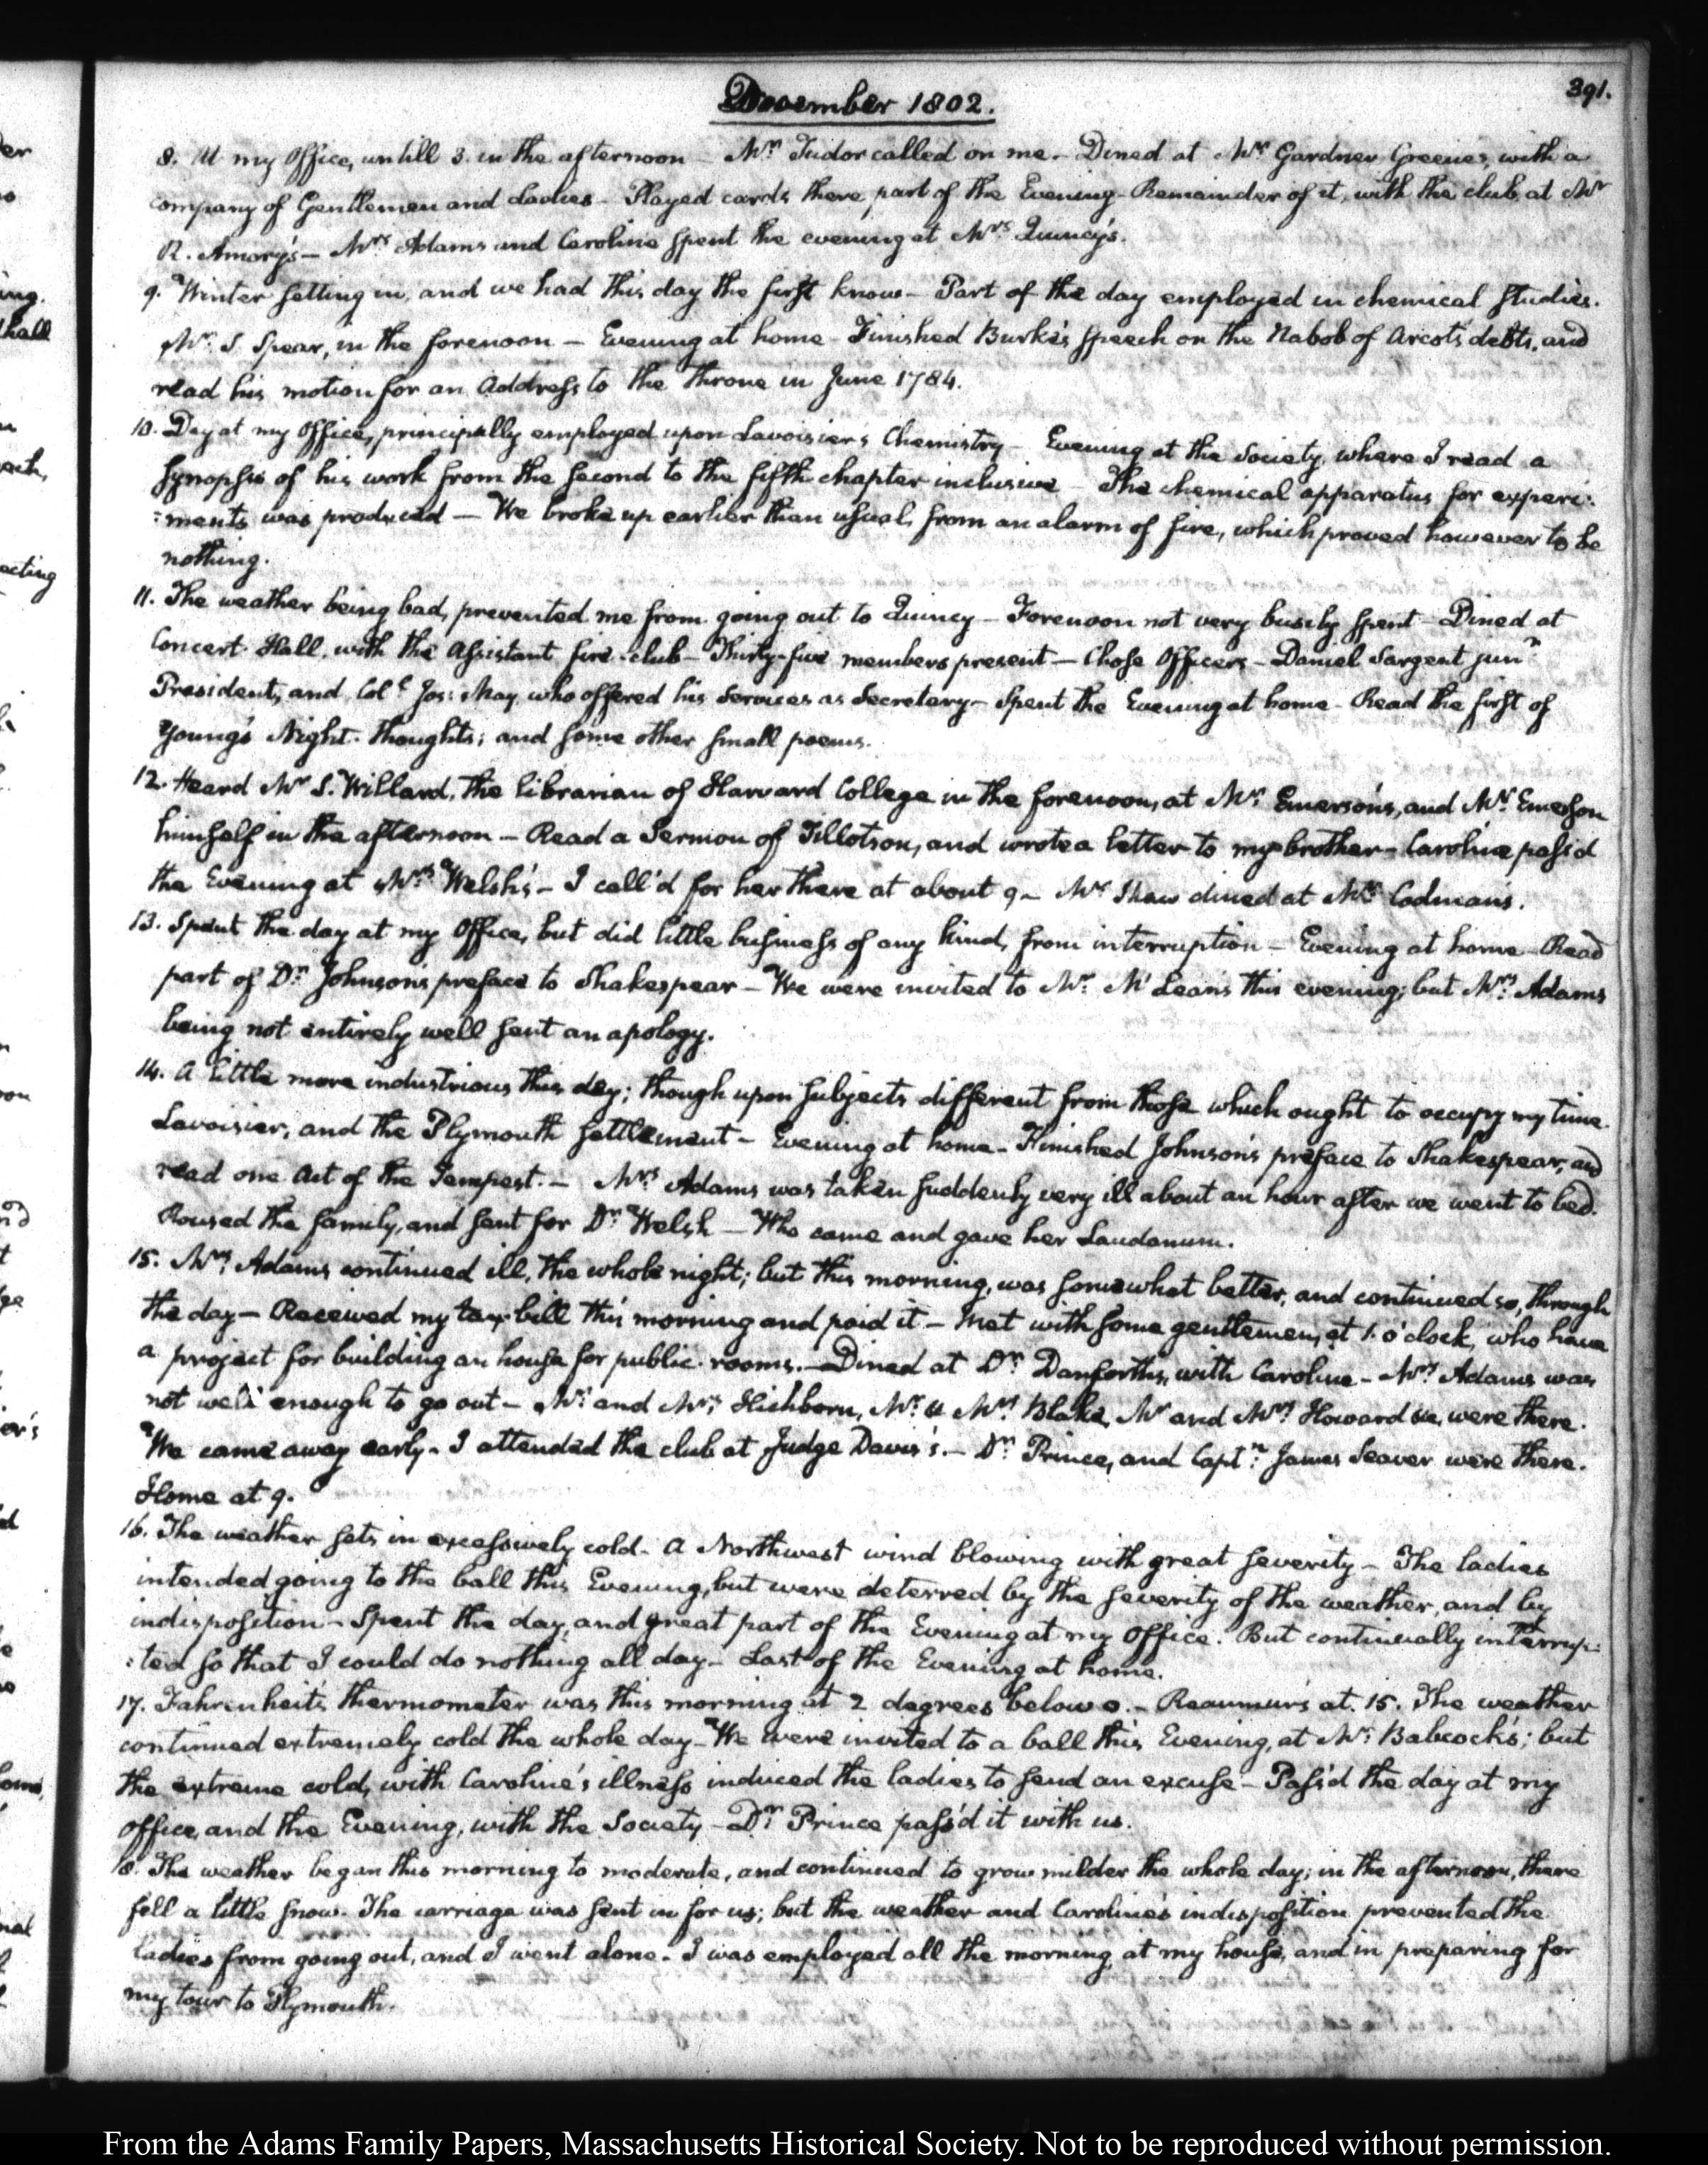 391.
December 1802.
8. At my Office, untill 3. in the afternoon — Mr. Tudor called on me. Dined at Mr. Gardner Greene's, with a
company of Gentlemen and Ladies — Played cards there, part of the Evening — Remainder of it, with the club, at Mr
R. Amory's — Mrs Adams and Caroline spent the evening at Mrs Quincy's.
9. Winter setting in, and we had this day the first snow — Part of the day employed in chemical studies.
Mr. S. Spear, in the forenoon — Evening at home — Finished Burke's speech on the Nabob of Arcot's debts, and
read his motion for an Address to the throne in June 1784.
10. Day at my Office, principally employed upon Lavoisier's Chemistry — Evening at the Society, where I read a
Synopsis of his work from the second to the fifth chapter inclusive — The chemical apparatus for experi:
:ments was produced — We broke up earlier than usual, from an alarm of fire, which proved however to be
nothing.
11. The weather being bad, prevented me from going out to Quincy — Forenoon not very busily spent — Dined at
Concert-Hall, with the Assistant fire-club — Thirty-five members present — Chose Officers — Daniel Sargent junr
President, and Coll Jos: May, who offered his services as Secretary — Spent the Evening at home — Read the first of
Young's Night-thoughts; and some other small poems.
12. Heard Mr S. Willard, the librarian of Harvard College in the forenoon, at Mr. Emerson's, and Mr. Emerson
himself in the afternoon — Read a Sermon of Tillotson, and wrote a letter to my brother — Caroline pass'd
the Evening at Mrs Welsh's — I call'd for her there at about 9 — Mr Shaw dined at Mrs Codman's.
13. Spent the day at my Office, but did little business of any kind, from interruption — Evening at home — Read
part of Dr. Johnson's preface to Shakespear — We were invited to Mr. McLean's this evening; but Mrs. Adams
being not entirely well sent an apology.
14. A little more industrious this day; though upon subjects different from those which ought to occupy my time.
Lavoisier, and the Plymouth settlement — Evening at home — Finished Johnson's preface to Shakespear, and
read one Act of the Tempest. — Mrs Adams was taken suddenly very ill about an hour after we went to bed.
Roused the family, and sent for Dr. Welsh — Who came and gave her Laudanum.
15. Mrs. Adams continued ill, the whole night; but this morning, was somewhat better, and continued so, through
the day — Received my tax-bill this morning and paid it — Met with some gentlemen, at 1. o'clock, who have
a project for building an house for public rooms. — Dined at Dr. Danforth's, with Caroline — Mrs. Adams was
not well enough to go out — Mr. and Mrs. Hichborn, Mr. & Mrs. Blake, Mr and Mrs. Howard &c, were there.
We came away early — I attended the club at Judge Davis's. — Dr. Prince, and Captn. James Seaver were there.
Home at 9.
16. The weather sets in excessively cold — A Northwest wind blowing with great severity — The ladies
intended going to the ball this Evening, but were deterred by the severity of the weather, and by
indisposition — Spent the day, and great part of the Evening at my Office. But continually interrup:
:ted so that I could do nothing all day — Last of the Evening at home.
17. Fahrenheit's thermometer was this morning at 2 degrees below 0. — Reaumur's at 15. The weather
continued extremely cold the whole day — We were invited to a ball this Evening, at Mr. Babcock's; but
the extreme cold, with Caroline's illness induced the ladies to send an excuse — Pass'd the day at my
Office, and the Evening, with the Society — Dr. Prince pass'd it with us.
18. The weather began this morning to moderate, and continued to grow milder the whole day; in the afternoon, there
fell a little snow. The carriage was sent in for us; but the weather and Caroline's indisposition prevented the
ladies from going out, and I went alone — I was employed all the morning at my house, and in preparing for
my tour to Plymouth.
From the Adams Family Papers, Massachusetts Historical Society. Not to be reproduced without permission.